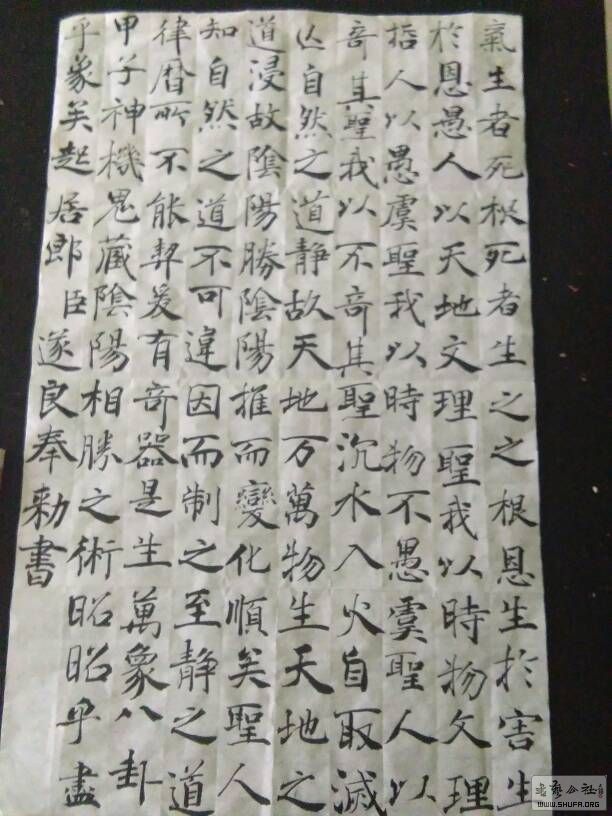 氣生者死根死者生之之根恩生於害生
於恩愚人以天地文理聖我以時物文理
哲人以愚虞聖我以時物不愚虞聖人以
奇其聖我以不奇其聖沉水入火自取滅
亡自然之道靜故天地万萬物生天地之
道浸故陰陽勝陰陽推而變化順矣聖人
知自然之道不可違因而制之至靜之道
律曆所不能契爰有奇器是生萬象八卦
甲子神機鬼藏陰陽相勝之術昭昭乎盡
乎象矣起居郎臣遂良奉勅書
WWW.SHUFA.ORG